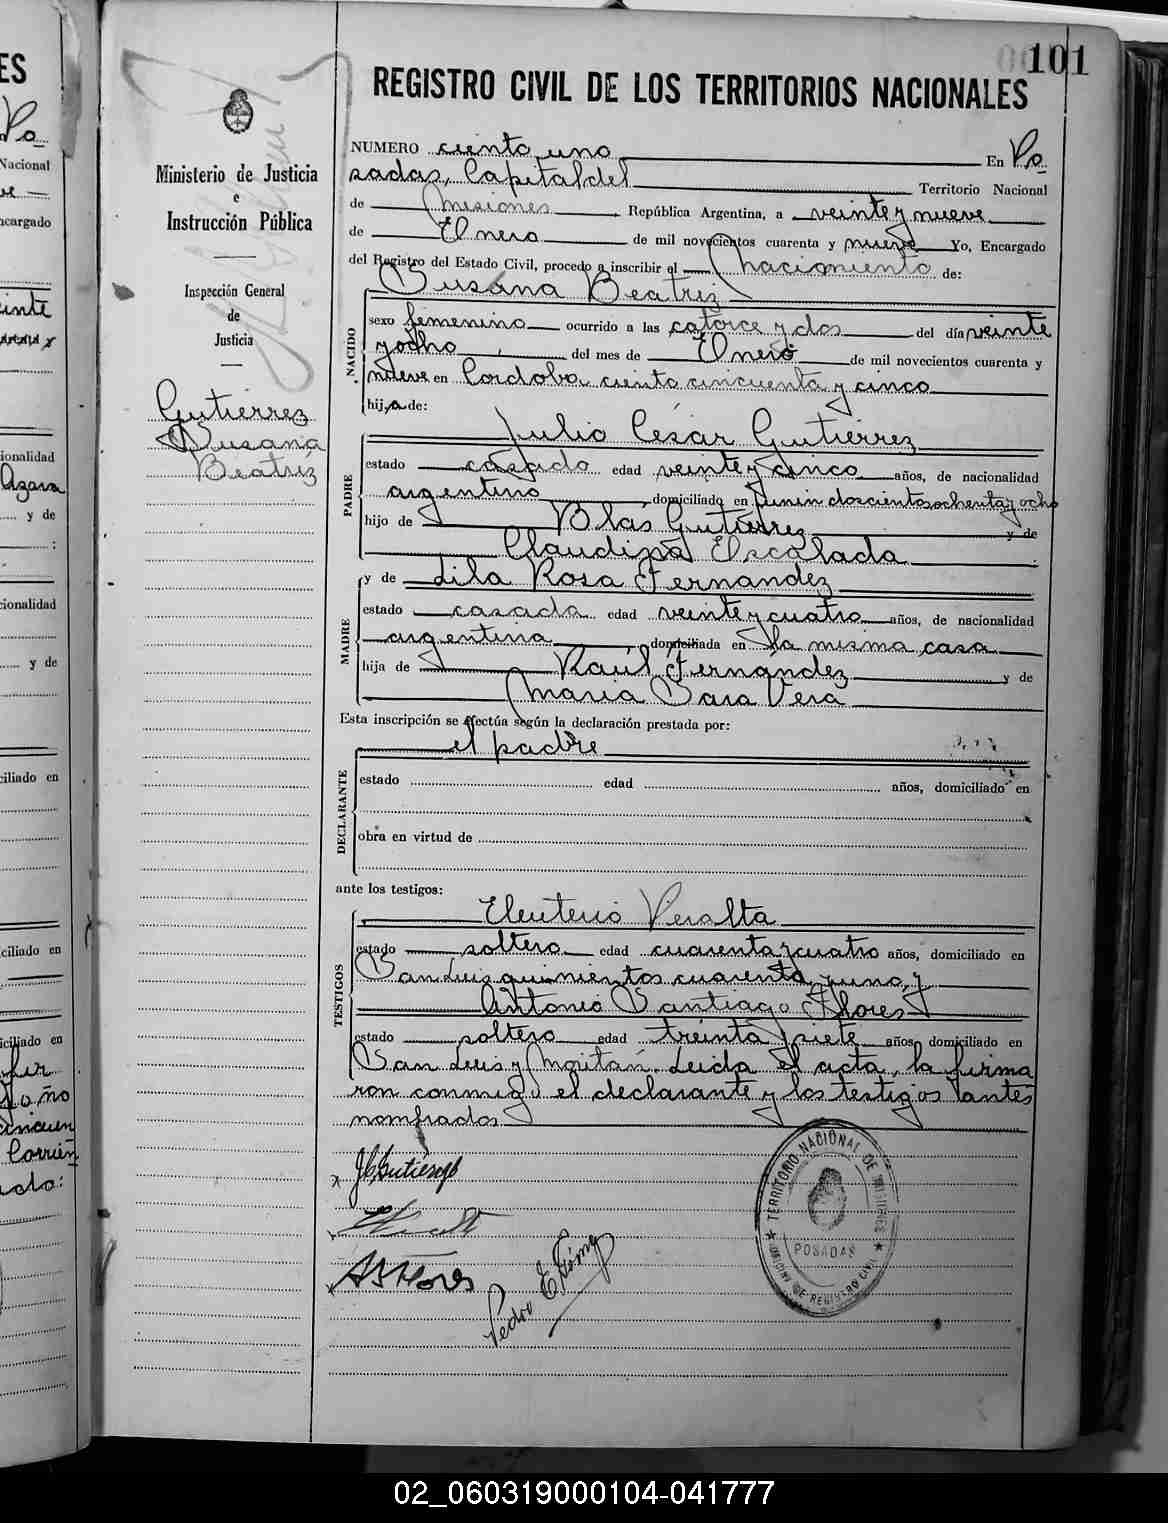 101
REGISTRO CIVIL DE LOS TERRITORIOS NACIONALES
Ministerio de Justicia
e
Instrucción Pública
Inspección General
de
Justicia
Gutiérrez
Susana
Beatriz
NUMERO ciento uno En Po
sadas, Capital del Territorio Nacional
de Misiones República Argentina, a veinte y nueve
de Enero de mil novecientos cuarenta y nueve Yo, Encargado
del Registro del Estado Civil, procedo a inscribir el nacimiento de:
Susana Beatriz
NACIDO
sexo femenino ocurrido a las catorce y dos del día veinte
y ocho del mes de Enero de mil novecientos cuarenta y
nueve en Cordoba ciento cincuenta y cinco
hija de:
Julio César Gutiérrez
PADRE
estado casado edad veinte y cinco años, de nacionalidad
argentino domiciliado en Junin doscientos ochenta y ocho
hijo de Blás Gutiérrez y de
Claudina Escalada
y de Lila Rosa Fernandez
MADRE
estado casada edad veinte y cuatro años, de nacionalidad
argentina domiciliada en la misma casa
hija de Raúl Fernandez y de
Maria Sara Vera
Esta inscripción se efectúa según la declaración prestada por:
el padre
DECLARANTE
estado edad años, domiciliado en
obra en virtud de
ante los testigos:
Eleuterio Peralta
TESTIGOS
estado soltero edad cuarenta y cuatro años, domiciliado en
San Luis quinientos cuarenta y uno, y
Antonio Santiago Flores
estado soltero edad treinta y siete años domiciliado en
San Luis y Moitán. Leida el acta, la firma
ron conmigo el declarante y los testigos antes
nombrados
J C Gutiérrez
A S Flores
Pedro E. Gómez
TERRITORIO NACIONAL DE MISIONES
POSADAS
OFICINA DE REGISTRO CIVIL
02_060319000104-041777